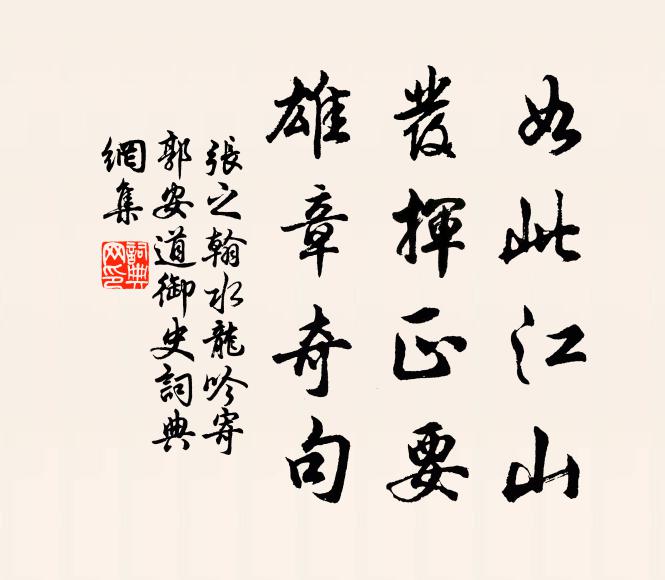 如此江山
發揮正要
雄章奇句
張之翰水龍吟寄
郭安道御史詞典
網集
詞典
网印